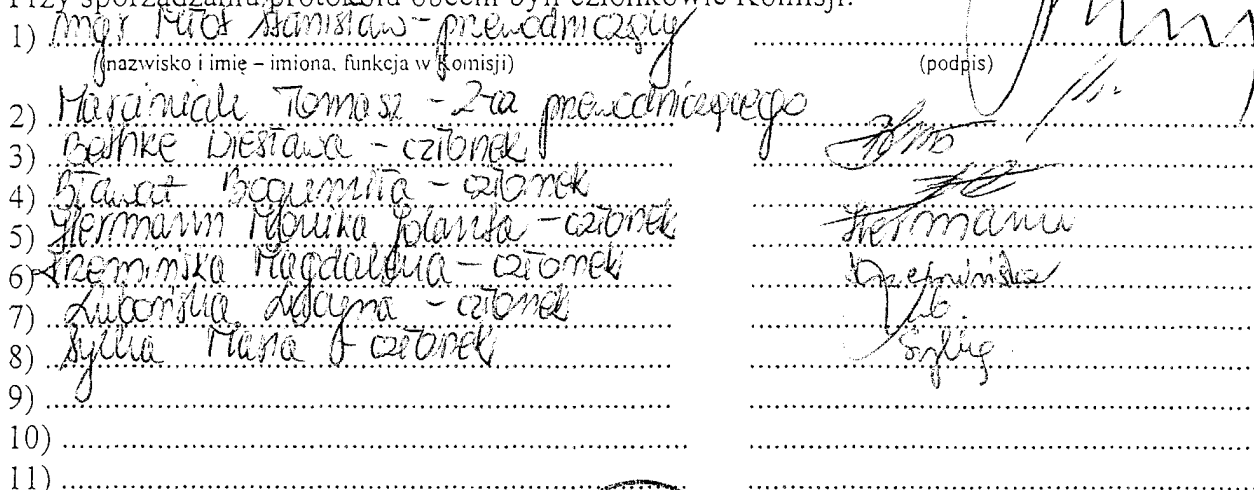 Przy sporządzaniu protokołu obecni byli członkowie Komisji:
1) mgr Miłos Stanisław - przewodniczący
(nazwisko i imię – imiona, funkcja w Komisji) (podpis)
2) Marciniak Tomasz - z-ca przewodniczącego
3) Bethke Wiesława - członek
4) Bławat Bogumiła - członek
5) Hermann Monika Jolanta - członek Hermann
6) Trzemińska Magdalena - członek Trzemińska
7) Lubońska Lucyna - członek
8) Sylka Maria - członek
9)
10)
11)